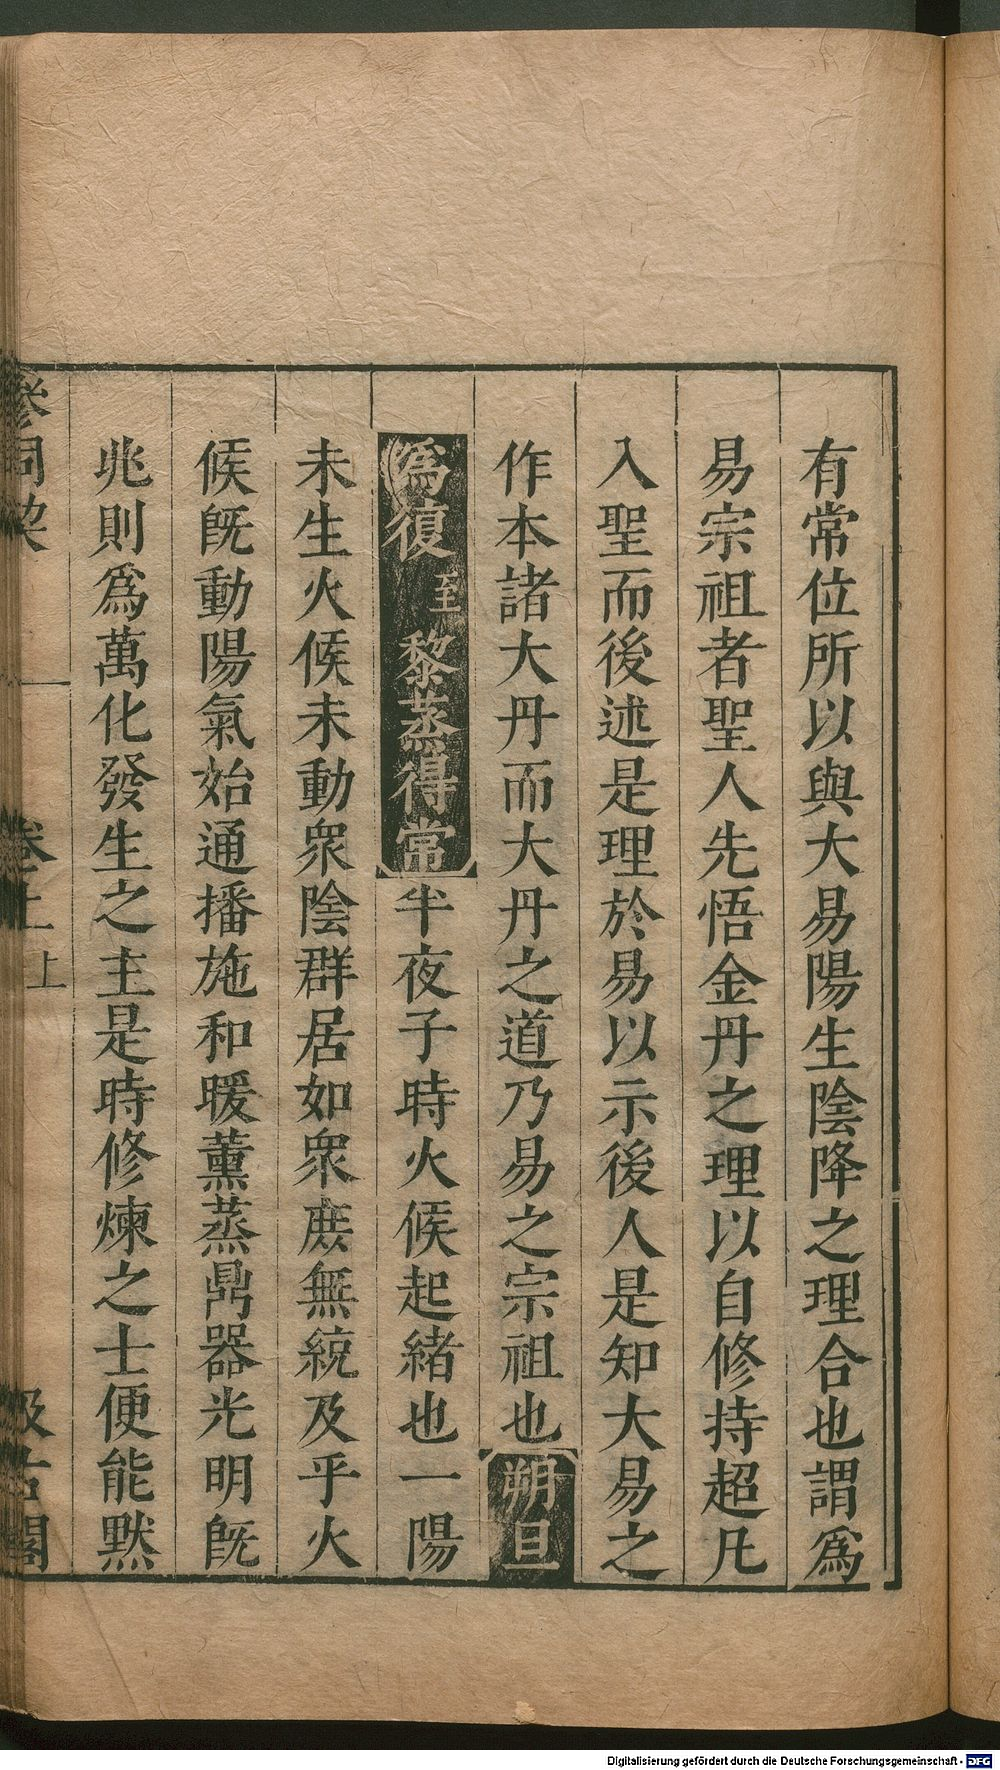 有常位所以與大易陽生陰降之理合也謂爲
易宗祖者聖人先悟金丹之理以自修持超凡
入聖而後述是理於易以示後人是知大易之
作本諸大丹而大丹之道乃易之宗祖也朔旦
爲復至黎蒸得常半夜子時火候起緒也一陽
未生火候未動衆陰群居如衆庻無統及乎火
候既動陽氣始通播施和暖薰蒸鼎器光明既
兆則爲萬化發生之主是時修煉之士便能黙
參同契 卷上上 汲古閣
Digitalisierung gefördert durch die Deutsche Forschungsgemeinschaft - DFG